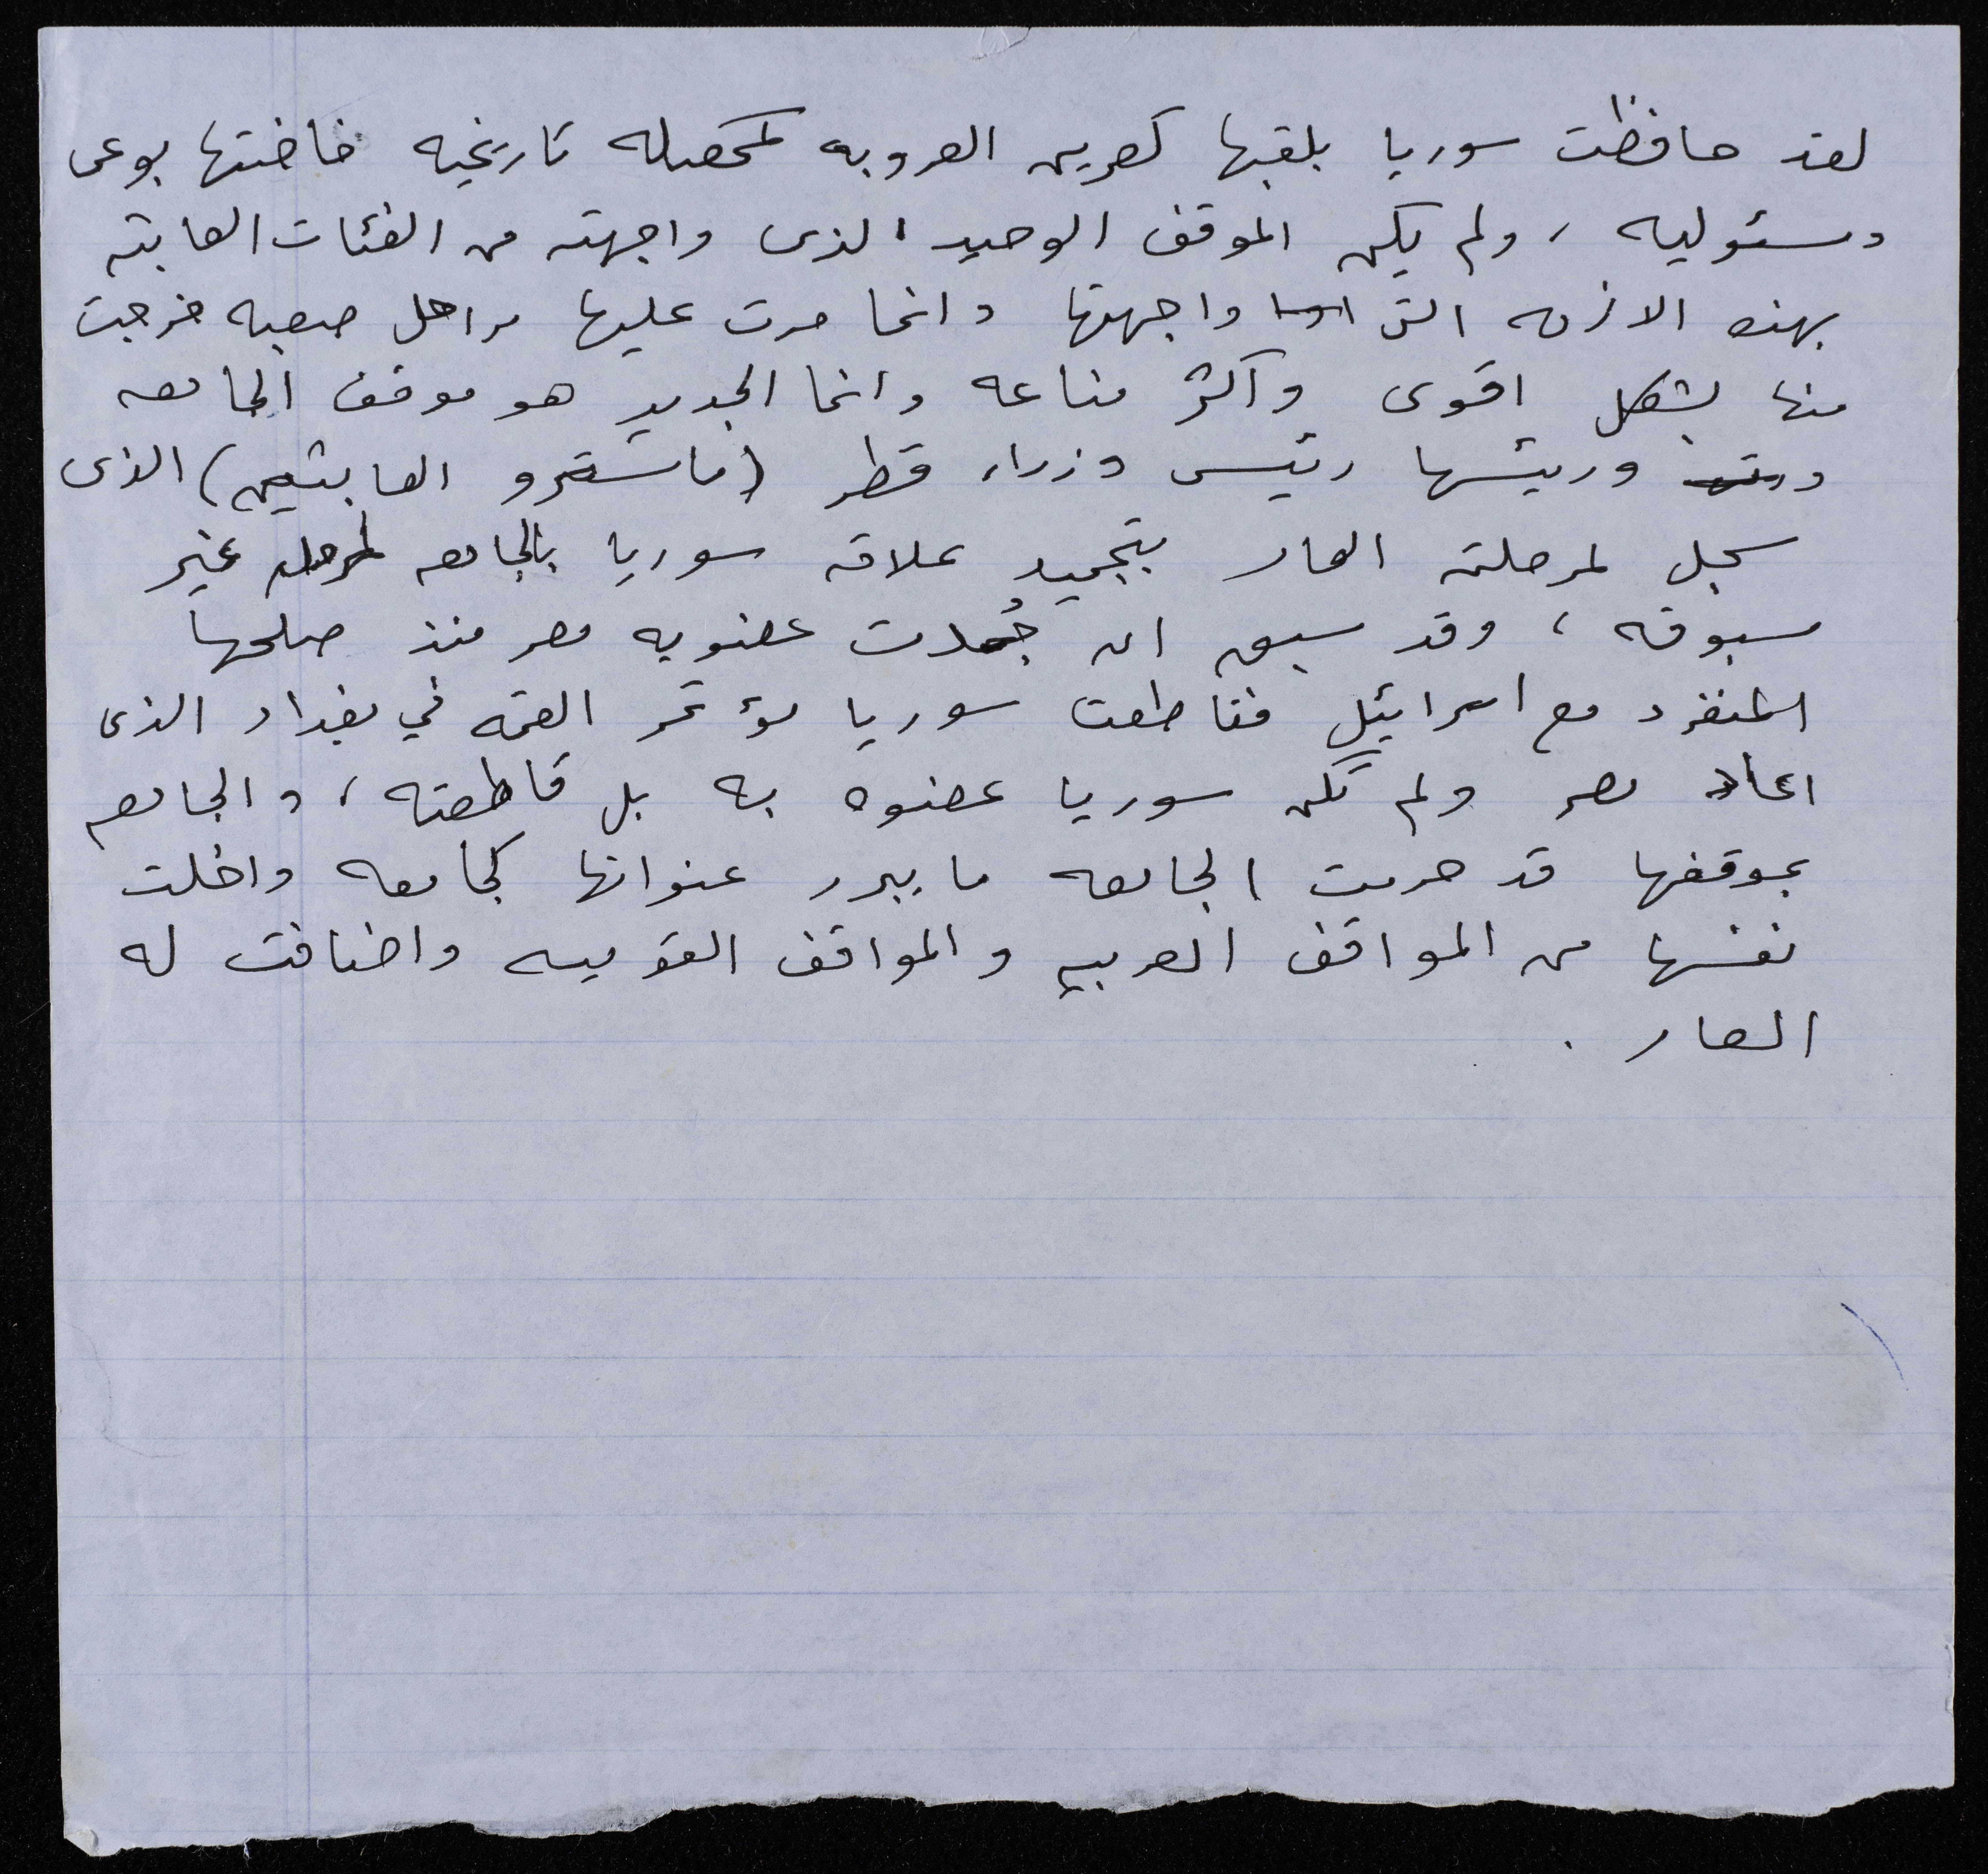 لقد حافظت سوريا بلقبها كعرين العروبه كمحصله تاريخيه خاضتها بوعى
ومسئوليه ، ولم يكن الموقف الوحيد الذى واجهته من الفئات العابثه
بهذه الازمه التى واجهتها وانما مرت عليها مراحل صعبه خرجت
منها بشكل اقوى وأكثر مناعه وانما الجديد هو موقف الجامعه
وريئسها رئيس وزراء قطر (مايسترو العابثين) الذى
سجل لمرحلته العار بتجميد علاقه سوريا بالجامعه لمرحله غير
مسبوقه ، وقد سبق ان جُمدت عضويه مصر منذ صلحها
المنفرد مع اسرائيل فقاطعت سوريا مؤتمر القمه في بغداد الذى
اعاد مصر ولم تكن سوريا عضوه به بل قاطعته ، والجامعه
بموقفها قد حرمت الجامعه ما يبرر عنوانها كجامعه واخلت
نفسها من المواقف العربيه والمواقف القوميه واضافت له
العار .